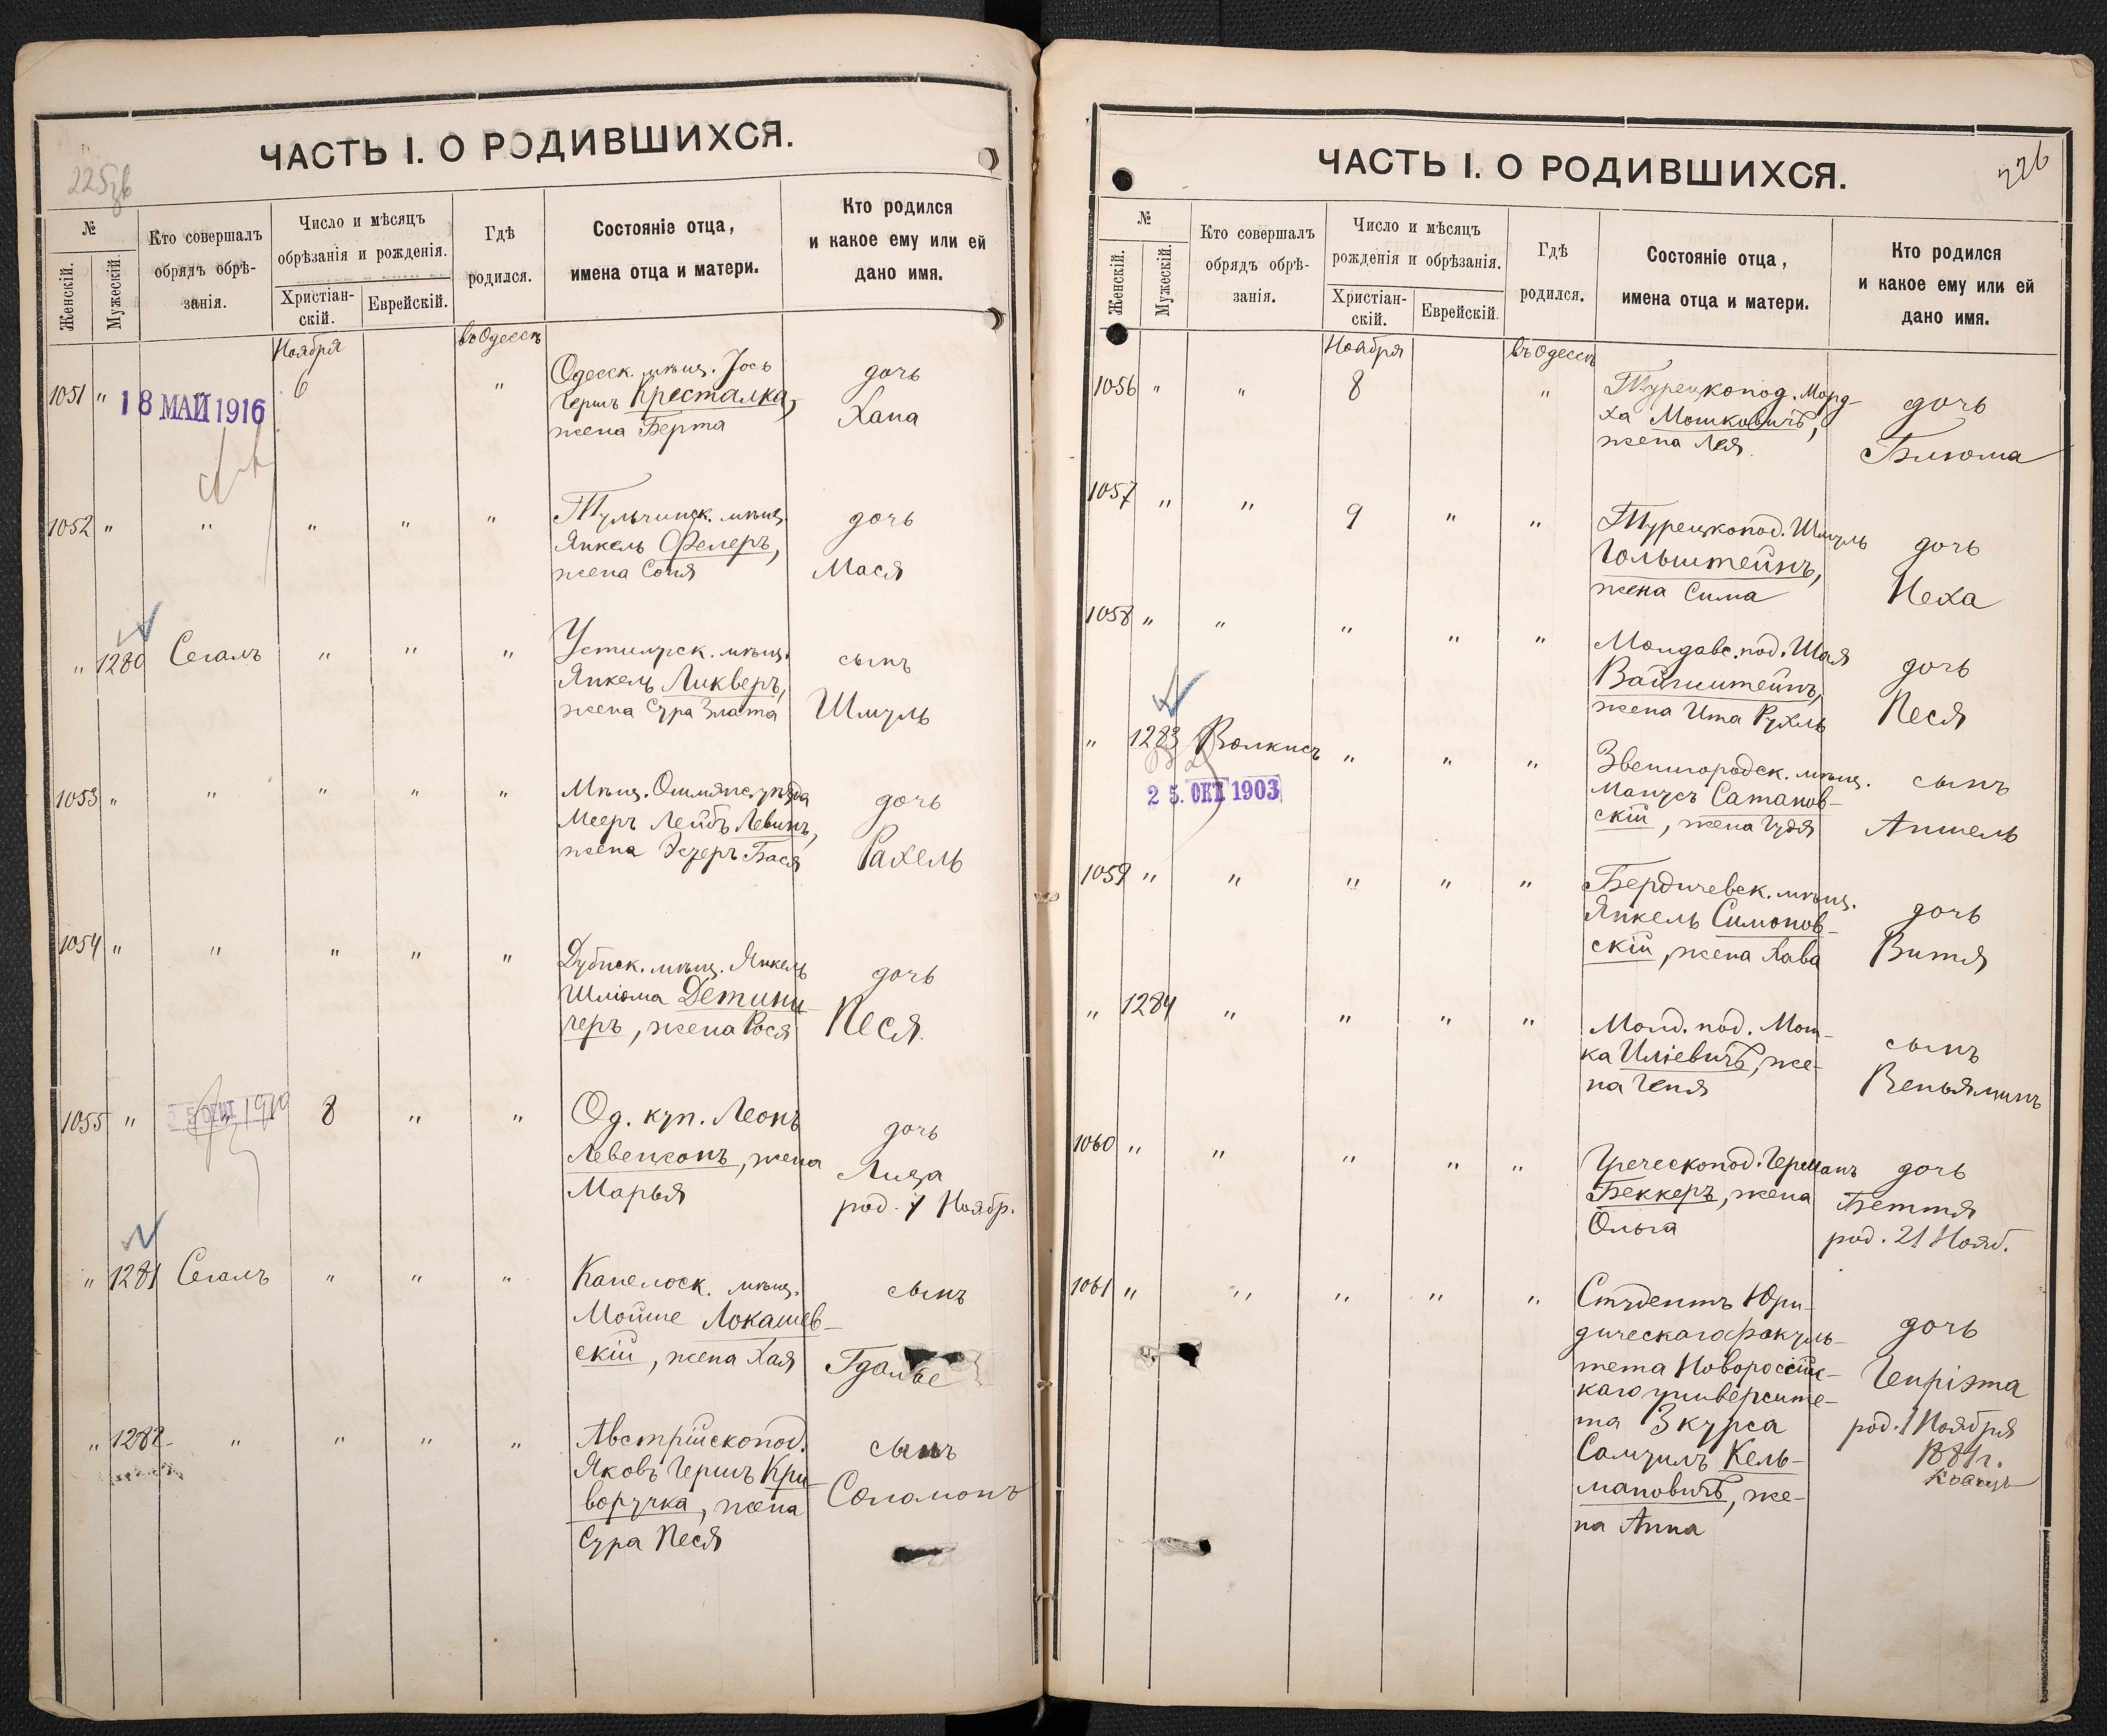 ЧАСТЬ I. О РОДИВШИХСЯ.
№
Женскій.
Мужескій.
Кто совершалъ
обрядъ обрѣ-
занія.
Число и мѣсяцъ
обрѣзанія и рожденія.
Христіан-
скій.
Еврейскій.
Гдѣ
родился.
Состояніе отца,
имена отца и матери.
Кто родился
и какое ему или ей
дано имя.
Ноября
въ Одессѣ
1051 " 18 МАЙ 1916 6 "
Одесск. мѣщ. Іось
Гершъ Кресталка,
жена Берта
дочь
Хана
1052 " " " " "
Тульчинск. мѣщ.
Янкель Фелеръ,
жена Соня
дочь
Мася
" 1280 Сегалъ " " "
мѣщ.
Янкель Ликверъ,
жена Сура Злата
сынъ
Шмуль
1053 " " " " "
Мѣщ. Ошмянс. уѣзда
Мееръ Лейбъ Левинъ,
жена Эстеръ Бася
дочь
Рахель
1054 " " " " "
Дубнск. мѣщ. Янкель
Шліома Детини-
черъ, жена Рося
дочь
Песя.
1055 " 1910 8 " "
Од. куп. Леонъ
Левенсонъ, жена
Марья
дочь
Лиза
род. 1 Ноябр.
" 1281 Сегалъ " " "
мѣщ.
Мойше Локашев-
скій, жена Хая
сынъ
Гдалье
" 1282 " " " "
Австрійскопод.
Яковъ Гершъ Кри-
воручка, жена
Сура Песя
сынъ
Соломонъ
ЧАСТЬ I. О РОДИВШИХСЯ.
226
№
Женскій.
Мужескій.
Кто совершалъ
обрядъ обрѣ-
занія.
Число и мѣсяцъ
рожденія и обрѣзанія.
Христіан-
скій.
Еврейскій.
Гдѣ
родился.
Состояніе отца,
имена отца и матери.
Кто родился
и какое ему или ей
дано имя.
Ноября
въ Одессѣ
1056 " " 8 "
Турецкопод. Морд-
ха Мошковичъ,
жена Лея.
дочь
Блюма
1057 " " 9 " "
Турецкопод. Шмуль
Гольштейнъ,
жена Сима
дочь
Неха
1058 " " " " "
Молдавс. под. Шая
Вайнштейнъ,
жена Ита Рухль
дочь
Песя
" 1283 Волкисъ " " "
25. ОКТ 1903
Звенигородск. мѣщ.
Манусъ Сатанов-
скій, жена Гудя
сынъ
Аншель
1059 " " " " "
Бердичевск. мѣщ.
Янкель Симонов-
скій, жена Хава
дочь
Витя
" 1284 " " " "
Молд. под. Мош-
ка Иліевичъ, же-
на Геня
сынъ
Веньяминъ
1060 " " " " "
Греческопод. Германъ
Беккеръ, жена
Ольга
дочь
Беття
род. 21 Нояб.
1061 " " " " "
Студентъ Юри-
дическаго факуль-
тета Новороссійс-
каго университе-
та 3 курса
Самуилъ Кель-
мановичъ, же-
на Анна
дочь
Генріэта
род. 1 Ноября
1881 г.